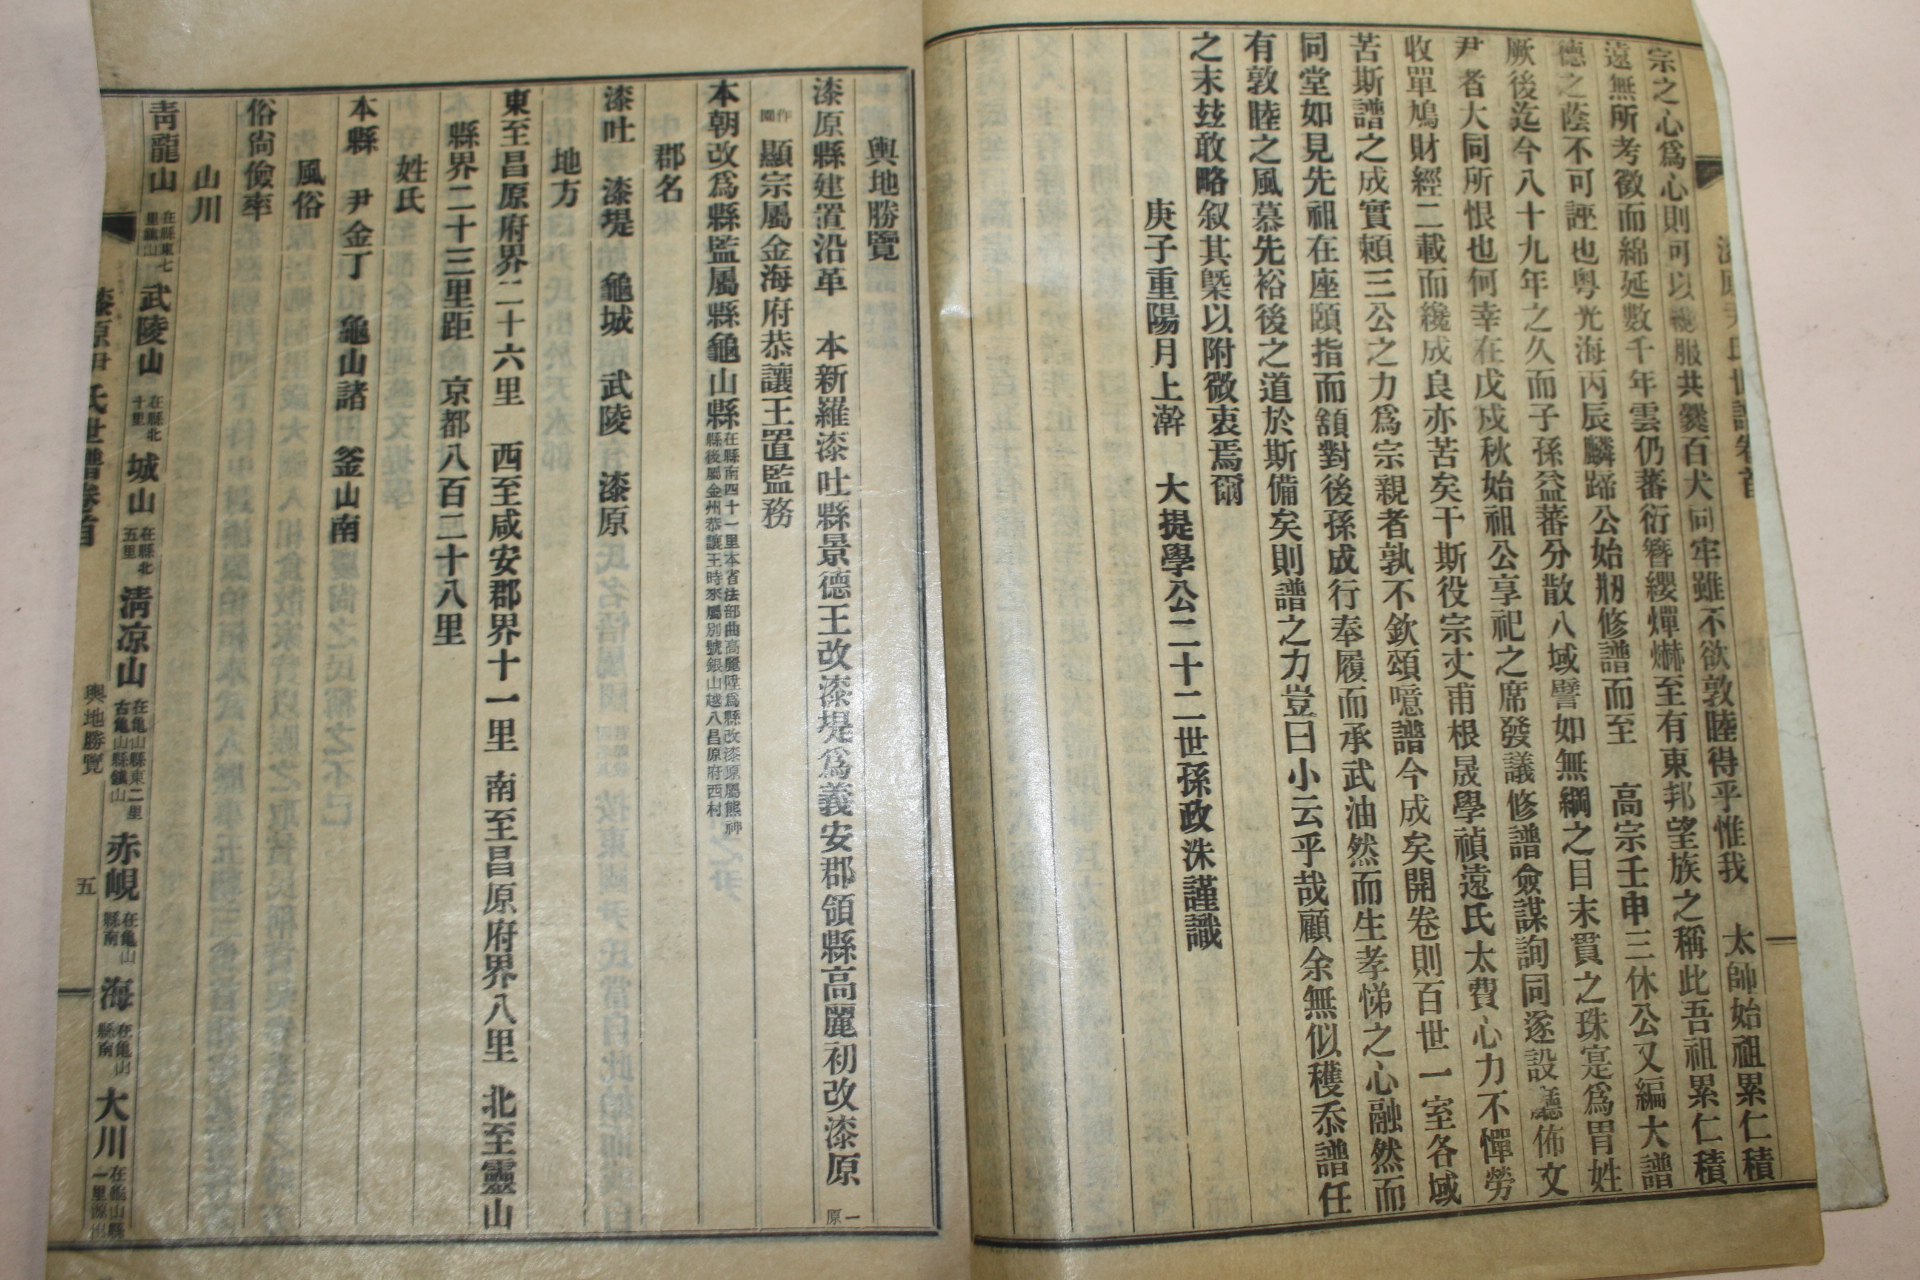 宗之心爲心則可以緦服共爨百犬同牢雖不欲敦陸得乎惟我 太師始祖累仁積
遠無所考徵而綿延數千年雲仍蕃衍簪纓燀爀至有東邦望族之稱此吾祖累仁積
德之蔭不可誣也粤光海丙辰麟蹄公始刱修譜而至 高宗壬申三休公又編大譜
厥後迄今八十九年之久而子孫益蕃分散八域譬如無綱之目末貫之珠寔爲冑姓
尹者大同所恨也何幸在戊戌秋始祖公享祀之席發議修譜僉謀詢同遂設廳佈文
收單鳩財經二載而纔成良亦苦矣干斯役宗丈甫根晟學禎遠氏太費心力不憚勞
苦斯譜之成實賴三公之力爲宗親者孰不欽頌噫譜今成矣開卷則百世一室各域
同堂如見先祖在座頤指而額對後孫成行奉履而承武油然而生孝悌之心融然而
有敦睦之風慕先裕後之道於斯備矣則譜之力豈曰小云乎哉顧余無似穫忝譜任
之末玆敢略叙其槩以附微衷焉爾
庚子重陽月上澣 大提學公二十二世孫政洙謹識
輿地勝覽
漆原縣建置沿革 本新羅漆吐縣景德王改漆堤爲義安郡領縣高麗初改漆原 一原
作園 顯宗屬金海府恭讓王置監務
本朝改爲縣監屬縣龜山縣 在縣南四十一里本省法部曲高麗陞爲縣改漆原屬熊神
縣後屬金州恭讓王時來屬別號銀山越入昌原府西村
郡名
漆吐 漆堤 龜城 武陵 漆原
地方
東至昌原府界二十六里 西至咸安郡界十一里 南至昌原府界八里 北至靈山
縣界二十三里距 京都八百三十八里
姓氏
本縣 尹 金丁 龜山諸 釜山南
風俗
俗尙儉率
山川
靑龍山 在縣東七里鎭山 武陵山 在縣北十里 城山 在縣北五里 淸凉山 在龜山縣東二里古龜山縣鎭山 赤峴 在龜山縣南 海 在龜山縣南 大川 在龜山縣一里源出
漆原尹氏世譜卷首
輿地勝覽
五